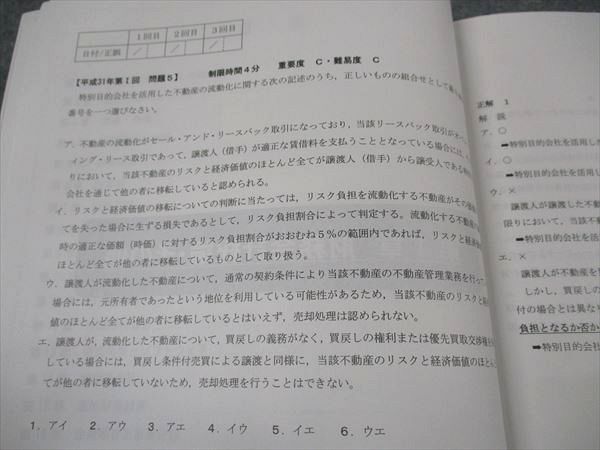 1回目 2回目 3回目
日付/正誤 / / /
【平成31年第Ⅰ回 問題5】 制限時間4分 重要度 C・難易度 C
特別目的会社を活用した不動産の流動化に関する次の記述のうち,正しいものの組合せとして
番号を一つ選びなさい。
ア.不動産の流動化がセール・アンド・リースバック取引になっており,当該リースバック取引が
ィング・リース取引であって,譲渡人(借手)が適正な賃借料を支払うこととなっている場合には,
りにおいて,当該不動産のリスクと経済価値のほとんど全てが譲渡人(借手)から譲受人である特別
会社を通じて他の者に移転していると認められる。
イ.リスクと経済価値の移転についての判断に当たっては,リスク負担を流動化する不動産がその
てを失った場合に生ずる損失であるとして,リスク負担割合によって判定する。流動化する不動産の
時の適正な価額(時価)に対するリスク負担割合がおおむね5%の範囲内であれば,リスクと経済
ほとんど全てが他の者に移転しているものとして取り扱う。
ウ.譲渡人が流動化した不動産について,通常の契約条件により当該不動産の不動産管理業務を行っ
場合には,元所有者であったという地位を利用している可能性があるため,当該不動産のリスクと経
値のほとんど全てが他の者に移転しているとはいえず,売却処理は認められない。
エ.譲渡人が,流動化した不動産について,買戻しの義務がなく,買戻しの権利または優先買取交渉権
している場合には,買戻し条件付売買による譲渡と同様に,当該不動産のリスクと経済価値のほとん
てが他の者に移転していないため,売却処理を行うことはできない。
1.アイ 2.アウ 3.アエ 4.イウ 5.イエ 6.ウエ
正解 1
解 説
ア.○
➡特別目的会社を
イ.○
➡特別目的会社
ウ.×
譲渡人が譲渡した不
限りにおいて,当該不
➡特別目的会社
エ.×
譲渡人が不動産を
しかし,買戻しの
付の場合とは異な
負担となるか否か
➡特別目的会社